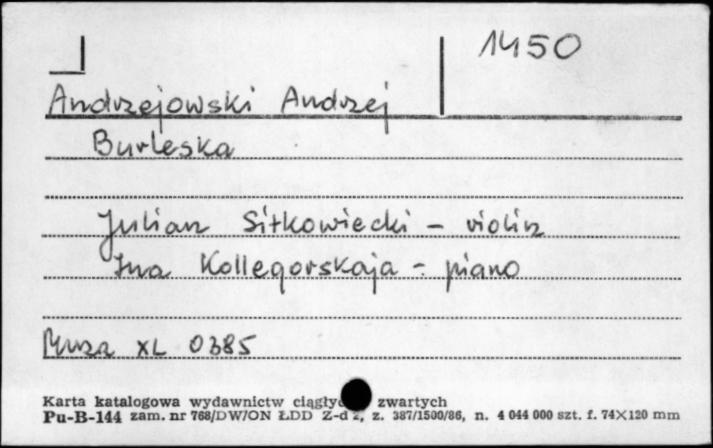 1450
Andrzejowski Andrzej
Burleska
Julian Sitkowiecki - violin
Ina Kollegorskaja - piano
Muza XL 0385
Karta katalogowa wydawnictw zwartych
Pu-B-114 zam. nr 768/DW/ON ŁDD Z-d 2, z. 387/1500/86, n. 4 044 000 szt. f. 74×120 mm